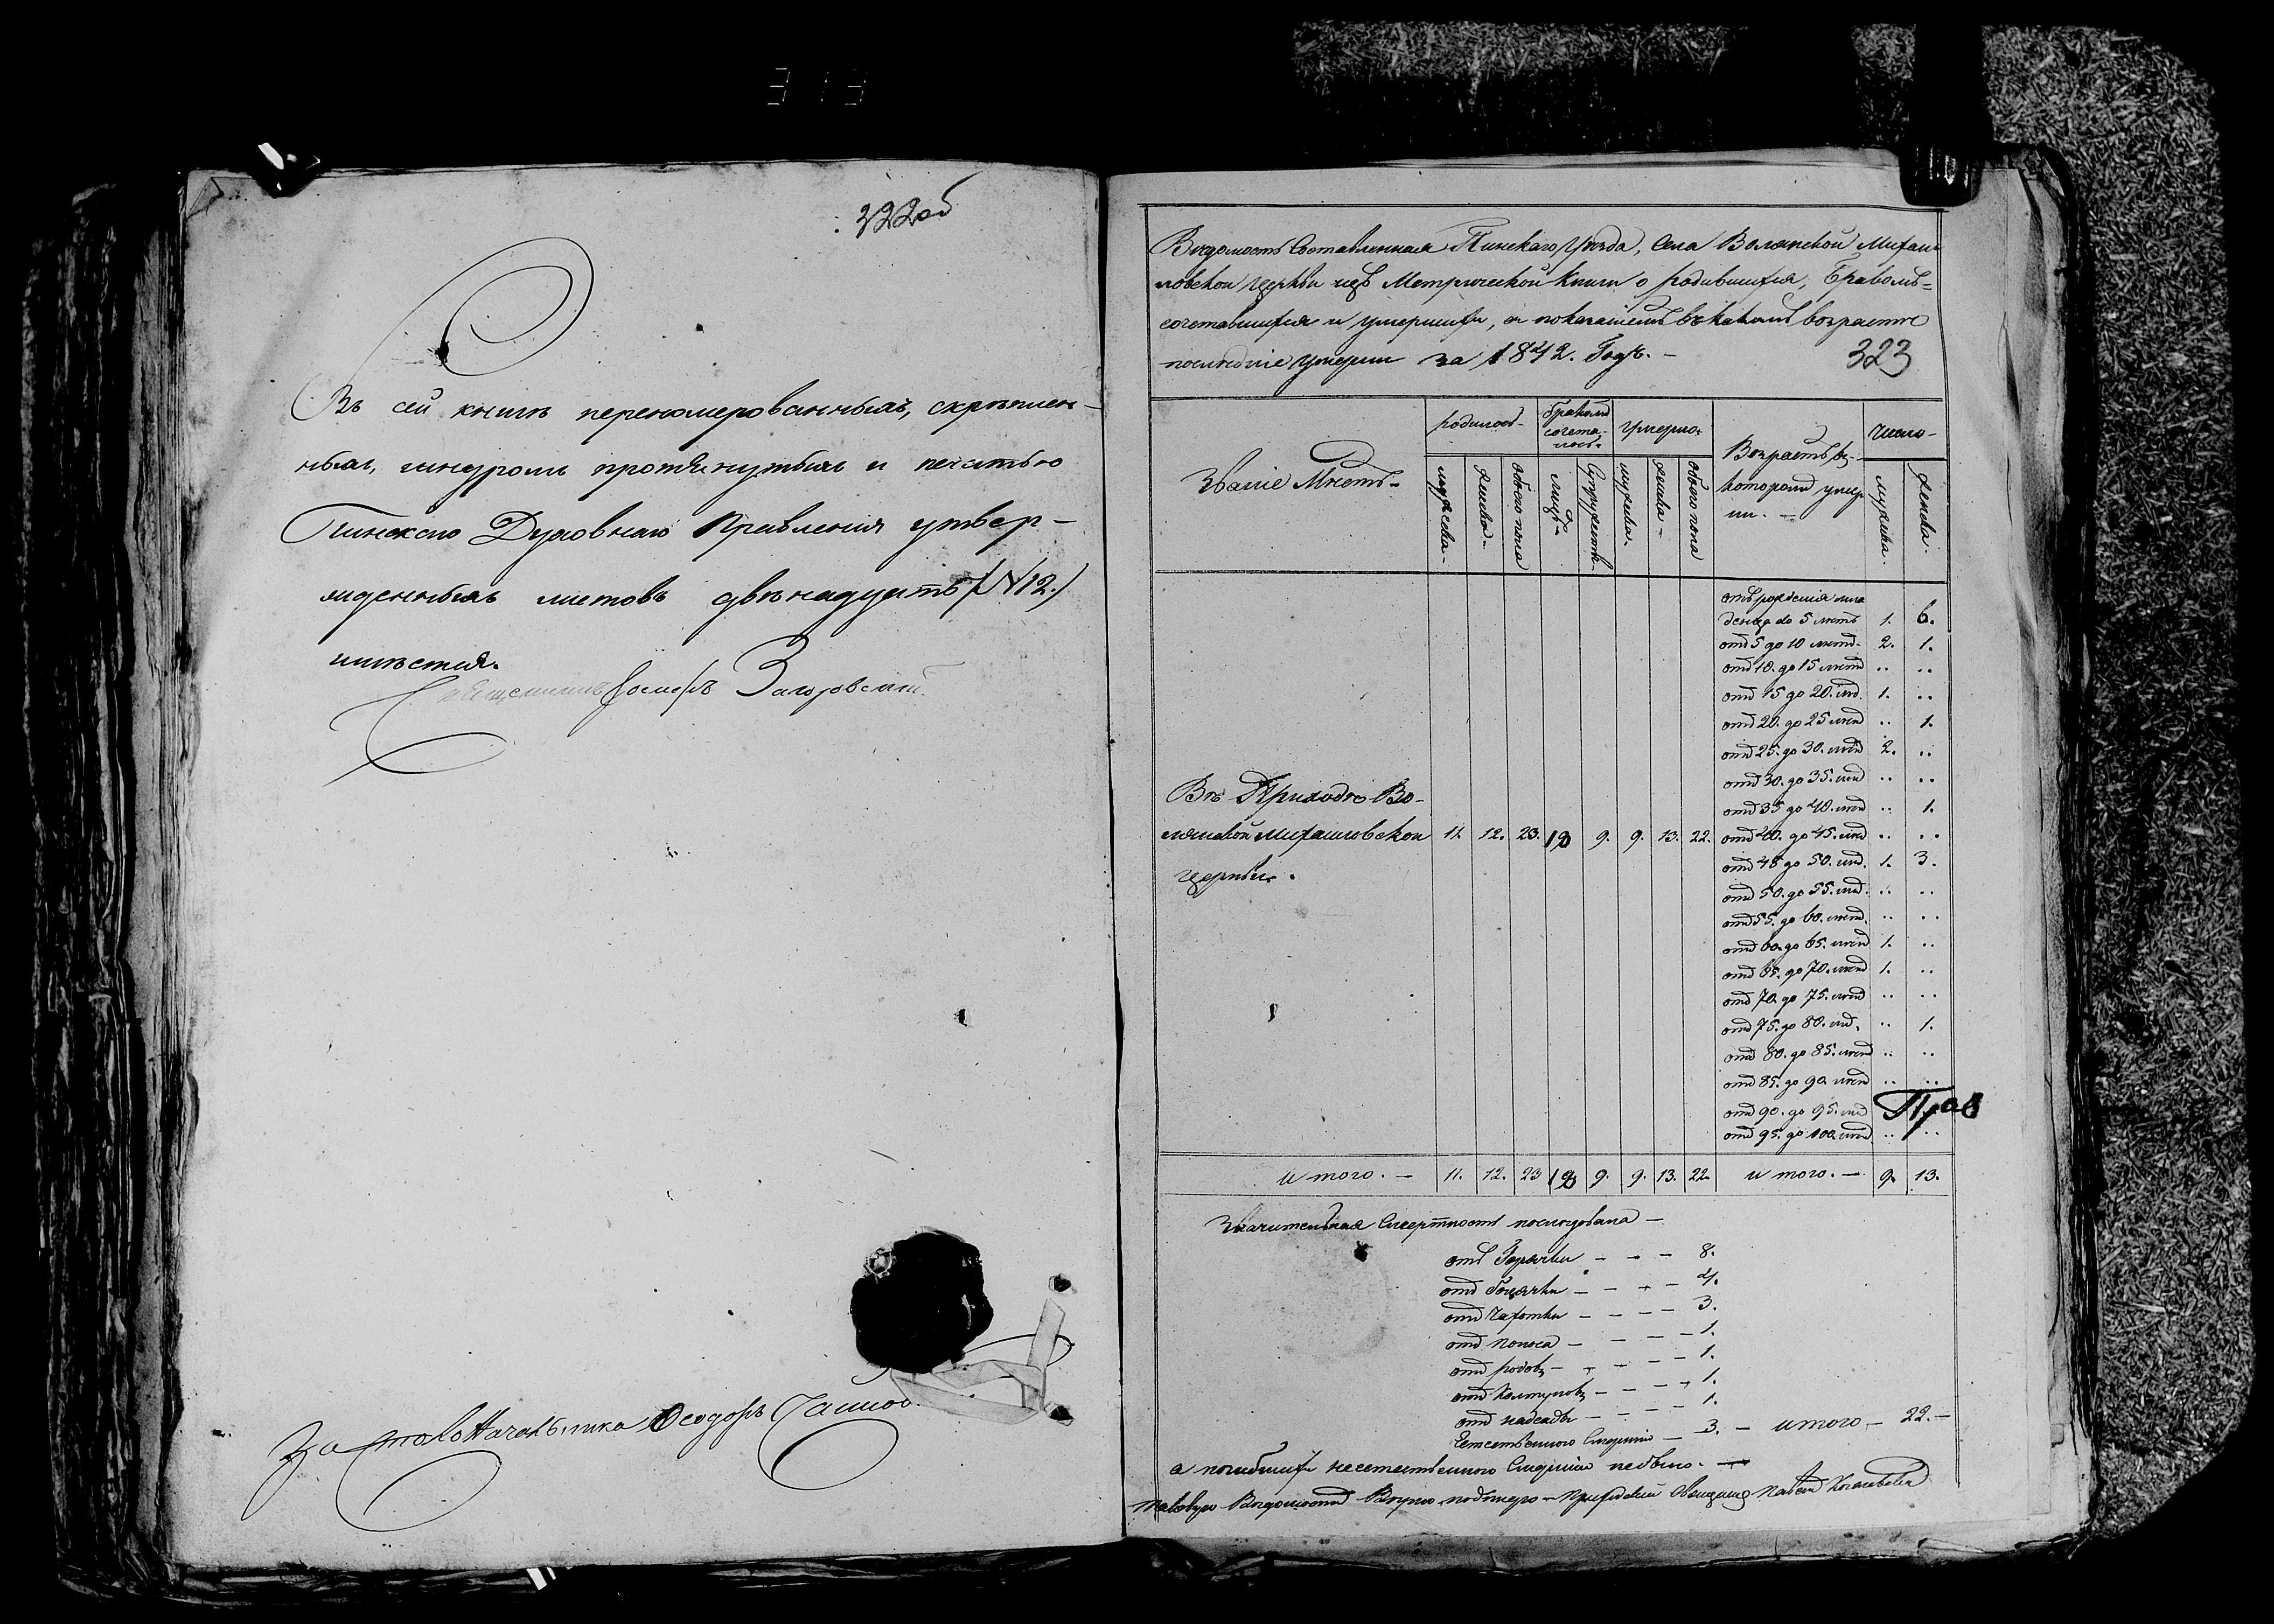 313
322об
Въ сей книгѣ перенумерованныхъ, скрѣплен-
ныхъ, шнуромъ протянутыхъ и печатью
Пинскаго Духовнаго Правленія утвер-
жденныхъ листовъ двѣнадцать (N12.)
имѣется.
Священникъ Іосифъ Загоровскій
За Столоначальника Ѳеодоръ
Вѣдомость Составленная Пинскаго Уѣзда, Села Волянской Михаи-
ловской церкви изъ Метрической Книги о родившихся, Бракомъ-
сочетавшихся и умершихъ, съ показаніемъ въ какомъ возрастѣ
послѣдніе умерли за 1842. Годъ. -
323
Званіе Мѣстъ-
родилось-
мужеска-
женска-
обоего пола
бракомъ
сочета-
лось.
лицъ-
Супружествъ-
умерло.
мужеска.
женска-
обоего пола
Возрастъ въ-
которомъ умер
ли. -
число-
мужеска.
женска.
отъ рожденія мла
денца до 5 лѣтъ 1. 6.
отъ 5 до 10 лѣтъ. 2. 1.
отъ 10. до 15 лѣтъ .. ..
отъ 15 до 20. лѣт. 1. ..
отъ 20. до 25 лѣтъ .. 1.
отъ 25. до 30. лѣтъ 2. ..
отъ 30. до 35. лѣтъ .. ..
отъ 35 до 40. лѣтъ .. 1.
Въ Приходѣ Во-
лянской Михаиловской 11. 12. 23. 18 9. 9. 13. 22. отъ 40. до 45. лѣтъ .. ..
церкви.
отъ 45 до 50. лѣт. 1. 3.
отъ 50. до 55. лѣт. .. ..
отъ 55. до 60. лѣтъ. .. ..
отъ 60. до 65. лѣтъ 1. ..
отъ 65. до 70. лѣтъ 1. ..
отъ 70. до 75. лѣтъ .. ..
отъ 75. до 80. лѣт. .. 1.
отъ 80. до 85. лѣтъ .. ..
отъ 85. до 90. лѣтъ .. ..
отъ 90. до 95. лѣт Прав
отъ 95. до 100. лѣтъ .. ..
и того. - 11. 12. 23 18 9. 9. 13. 22. и того. - 9. 13.
Значительная Смертность послѣдовала -
отъ Горячки - - - 8.
отъ - - - - 4.
отъ Чахотки - - - - 3.
отъ поноса - - - - 1.
отъ родовъ - - - - 1.
отъ Колтуновъ - - - - 1.
отъ надсады - - - - 1.
Естественною Смертію - 3. - итого - 22. -
а погибшихъ неестественною Смертію небыло. -
таковую Вѣдомость Вѣрно